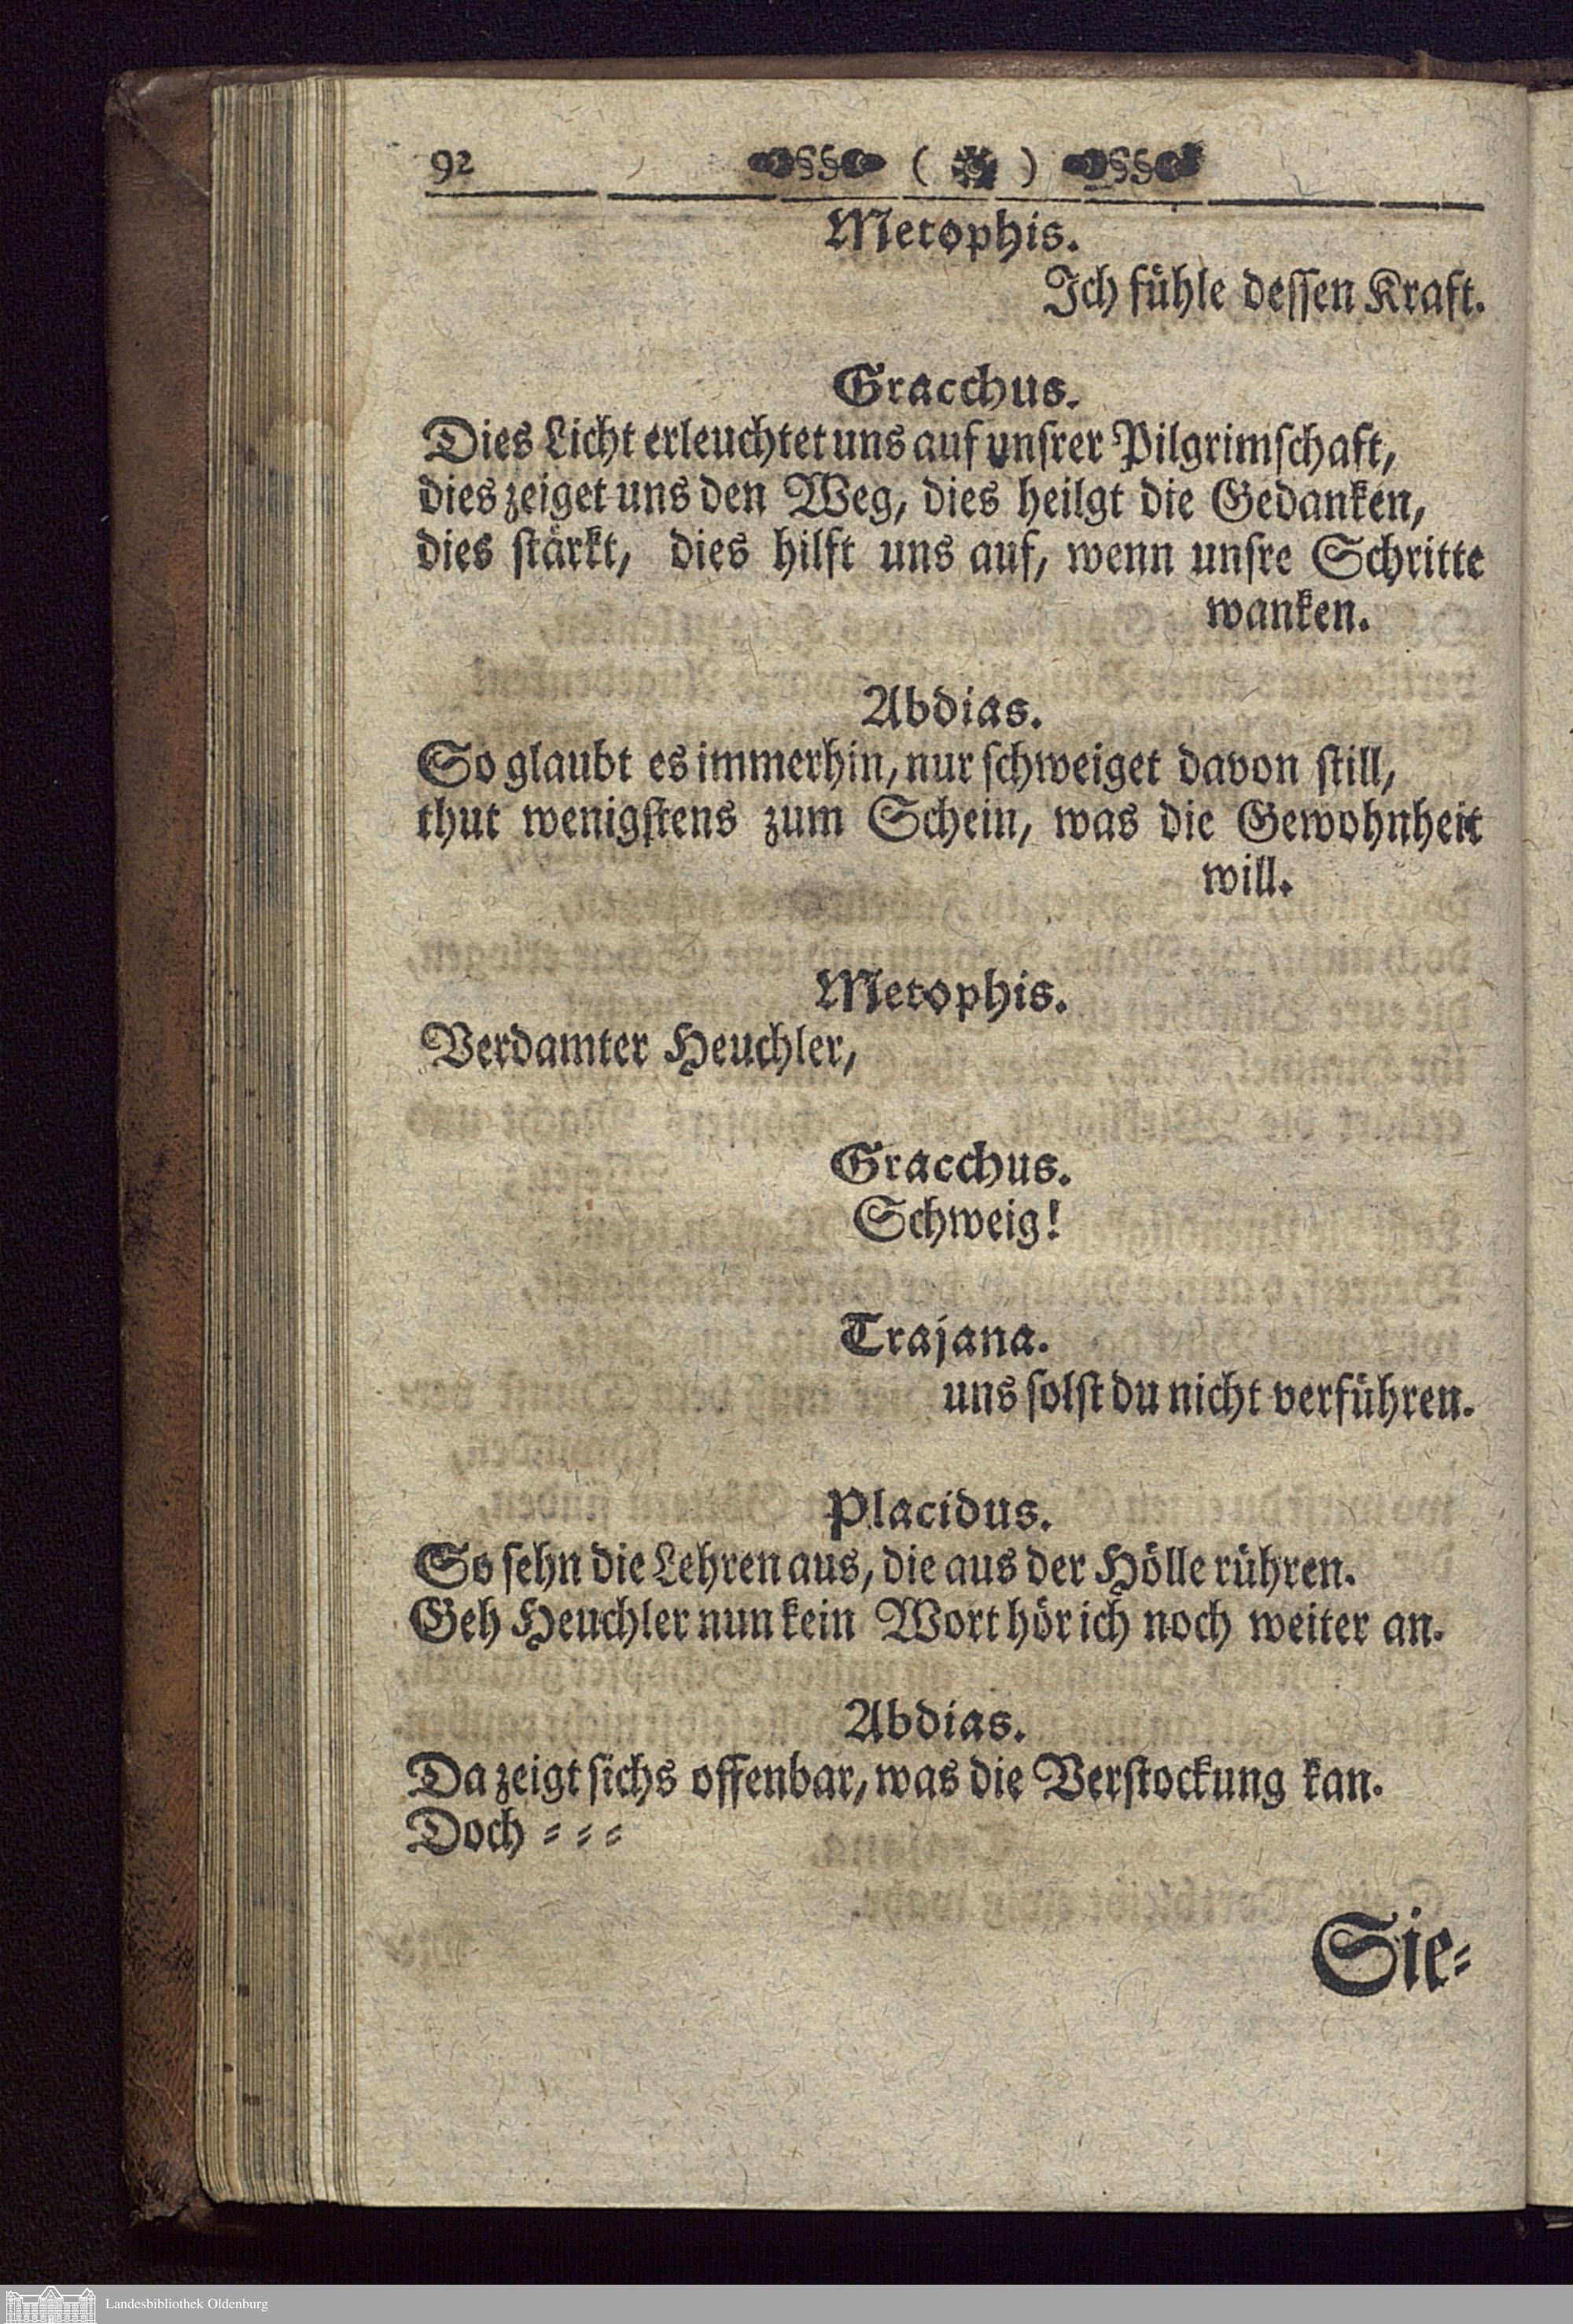 92 §§ ( ) §§
Metophis.
Ich fühle dessen Kraft.
Gracchus.
Dies Licht erleuchtet uns auf unsrer Pilgrimschaft,
dies zeiget uns den Weg, dies heilgt die Gedanken,
dies stärkt, dies hilft uns auf, wenn unsre Schritte
wanken.
Abdias.
So glaubt es immerhin, nur schweiget davon still,
thut wenigstens zum Schein, was die Gewohnheit
will.
Metophis.
Verdamter Heuchler,
Gracchus.
Schweig!
Trajana.
uns solst du nicht verführen.
Placidus.
So sehn die Lehren aus, die aus der Hölle rühren.
Geh Heuchler nun kein Wort hör ich noch weiter an.
Abdias.
Da zeigt sichs offenbar, was die Verstockung kan.
Doch = = =
Sie=
Landesbibliothek Oldenburg